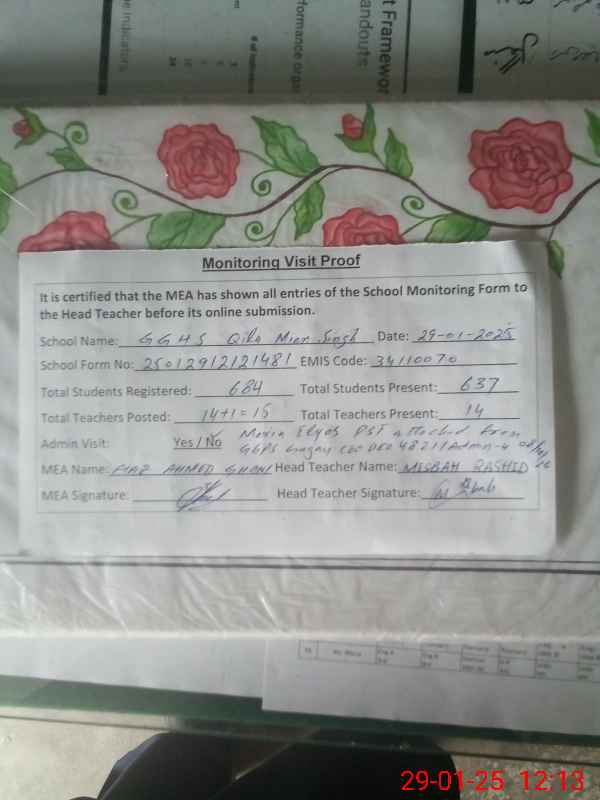 t Framewor
andouts
formance orga
Indicators
Monitoring Visit Proof
It is certified that the MEA has shown all entries of the School Monitoring Form to
the Head Teacher before its online submission.
School Name: GGHS Qila Mian Singh Date: 29-01-2025
School Form No: 25012912121481 EMIS Code: 34110070
Total Students Registered: 684 Total Students Present: 637
Total Teachers Posted: 14+1=15 Total Teachers Present: 14
Admin Visit: Yes / No Maria Ilyas PST attached from
GGPS CEO DEO 4821/Admn-4
MEA Name: AHMED GHANI Head Teacher Name: MISBAH RASHID
MEA Signature: Head Teacher Signature:
29-01-25 12:13